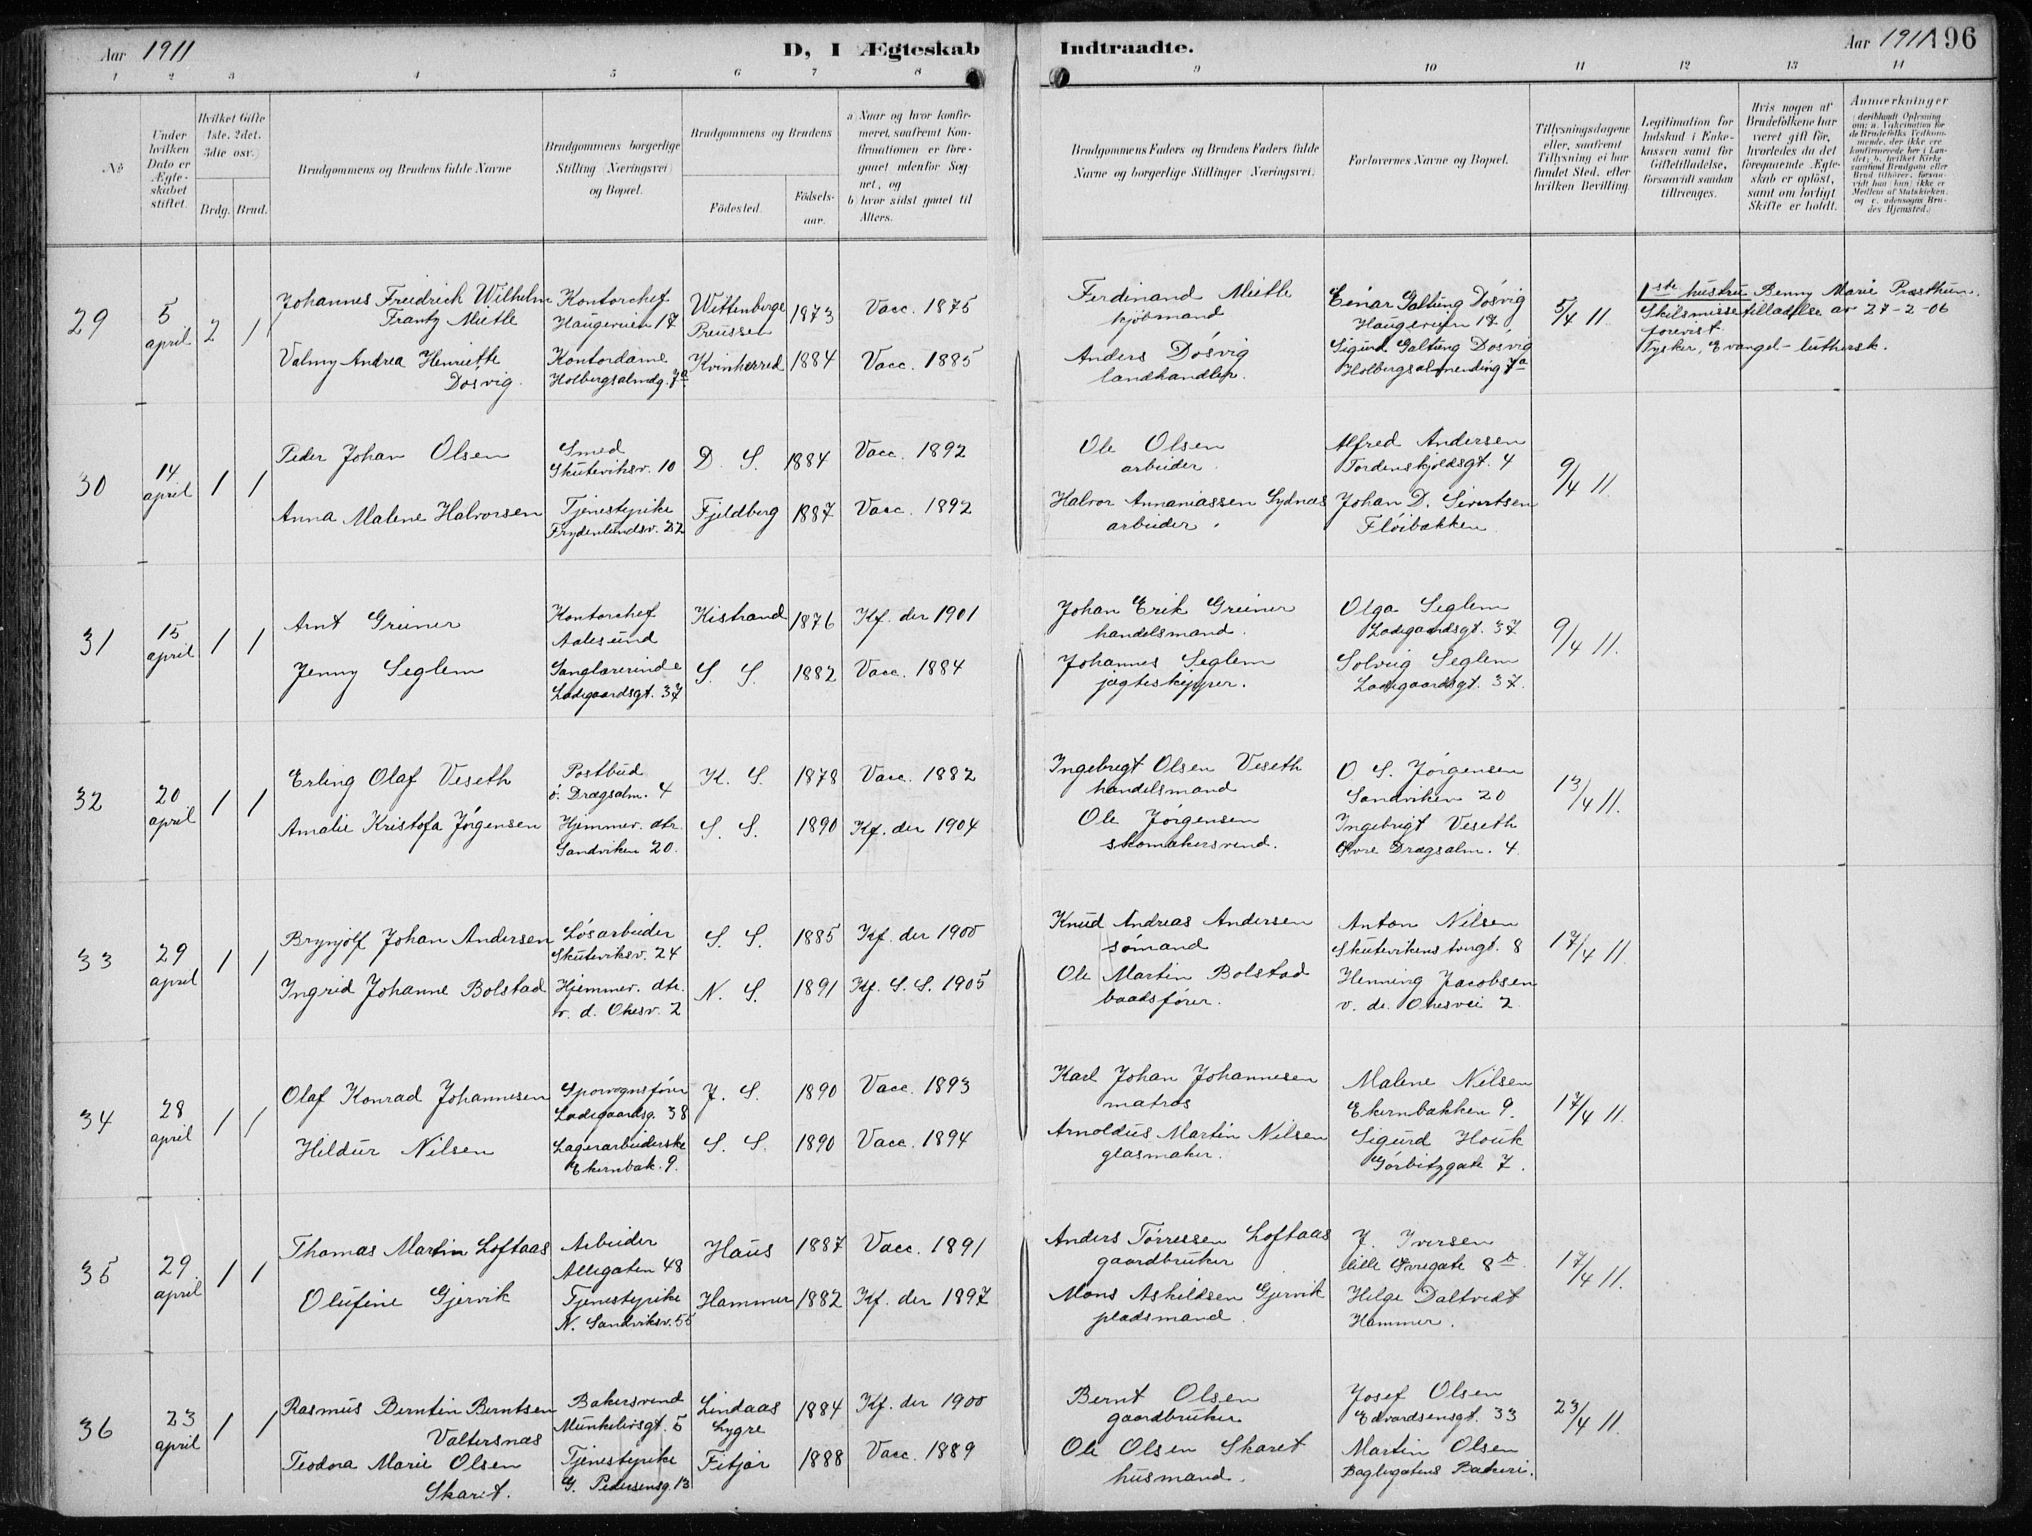 Aar 1911
D, I Ægteskab
Indtraadte.
Aar 1911
196
1 2 3 4 5 6 7 8 9 10 11 12 13 14
No
Under hvilken Dato er Ægteskabet stiftet.
Hvilket Gifte 1ste. 2det. 3die osv.
Brdg. Brud.
Brudgommens og Brudens fulde Navne
Brudgommens borgerlige Stilling (Næringsvei) og Bopæl.
Brudgommens og Brudens
Födested.
Födsels-aar.
a) Naar og hvor konfirmeret, saafremt Konfirmationen er foregaaet udenfor Sognet, og
b) hvor sidst gaaet til Alters.
Brudgommens Faders og Brudens Faders fulde Navne og borgerlige Stillinger Næringsvei.
Forlovernes Navne og Bopæl.
Tillysningsdagene eller, saafremt Tillysning ei har fundet Sted, efter hvilken Bevilling.
Legitimation for Indskud i Enkekassen samt for Giftetilladelse, forsaavidt saadan tiltrænges.
Hvis nogen af Brudefolkene har været gift för, hvorledes da det foregaaende Ægteskab er oplöst, samt om lovligt Skifte er holdt.
Anmærkninger (deriblandt Oplysning om: a. Vakcination for de Brudefolks Vedkommende, der ikke ere konfirmerede her i Landet; b. hvilket Kirkesamfund Brudgom eller Brud tilhörer, forsaavidt han (hun) ikke er Medlem af Statskirken, og c. udensogns Brudes Hjemsted.)
29
5 april
2 1
Johannes Freidrich Wilhelm
Frantz Mietle
Kontorchef
Haugeveien 17
Wittenberge
Preussen
1873
Vacc. 1875
Ferdinand Mietle
kjöbmand
Einar Galtung Dösvig
Haugeveien 17
5/4 11.
1ste hustru Benny Marie Præsthun.
Skilsmissetilladelse av 27-2-06
forevist.
Tysker, Evangel-luthersk.
Valmy Andrea Henriette
Dösvig.
Kontordame
Holbergsalmdg. 7a
Kvinherred
1884
Vacc. 1885
Anders Dösvig
landhandler.
Sigurd Galtung Dösvig
Holbergsalmending 7a
30
14 april
1 1
Peder Johan Olsen
Smed
Skuteviksv. 10
D. S.
1884
Vacc. 1892
Ole Olsen
arbeider.
Alfred Andersen
Tordenskjoldsgt. 4
9/4 11.
Anna Malene Halvorsen
Tjenestepike
Frydenlundsv. 22
Fjeldberg
1887
Vacc. 1892
Halvor Annaniassen Sydnæs
arbeider.
Johan D. Sivertsen
Flöibakken
31
15 april
1 1
Arnt Greiner
Kontorchef
Aalesund
Kistrand
1876
Kf. der 1901
Johan Erik Greiner
handelsmand.
Olga Seglem
Ladegaardsgt. 37
9/4 11.
Jenny Seglem
Sanglærerinde
Ladegaardsgt. 37
S. S.
1882
Vacc. 1884
Johannes Seglem
jægteskipper.
Solveig Seglem
Ladegaardsgt. 37.
32
20 april
1 1
Erling Olaf Veseth
Postbud
ö. Dragsalm. 4
K. S.
1878
Vacc. 1882
Ingebrigt Olsen Veseth
handelsmand
O. S. Jörgensen
Sandviken 20
13/4 11.
Amalie Kristofa Jörgensen
Hjemmev. dtr.
Sandviken 20.
S. S.
1890
Kf. der 1904
Ole Jörgensen
skomakersvend.
Ingebrigt Veseth
Övre Dragsalm. 4.
33
29 april
1 1
Brynjolf Johan Andersen
Lösarbeider
Skuteviksv. 24
S. S.
1885
Kf. der 1900
Knud Andreas Andersen
sömand
Anton Nilsen
Skutevikens torgt. 8
17/4 11.
Ingrid Johanne Bolstad
Hjemmev. dtr.
v. d. Ohesv. 2
N. S.
1891
Kf. S. S. 1905
Ole Martin Bolstad
baadsförer.
Henning Jacobsen
v. de. Ohesvei 2
34
28 april
1 1
Olaf Konrad Johannesen
Sporvognsförer
Ladegaardsg. 38
J. S.
1890
Vacc. 1893
Karl Johan Johannesen
matros
Malene Nilsen
Ekernbakken 9.
17/4 11.
Hildur Nilsen
Lagerarbeiderske
Ekernbak. 9.
S. S.
1890
Vacc. 1894
Arnoldus Martin Nilsen
glasmaker.
Sigurd Houk
Görbitzgate 7.
35
29. april
1 1
Thomas Martin Loftaas
Arbeider
Allegaten 48
Haus
1887
Vacc. 1891
Anders Törressen Loftaas
gaardbruker
J. Iversen
lille Övregate 8 b
17/4 11.
Olufine Gjervik
Tjenestepike
N. Sandviksv. 55
Hammer
1882
Kf. der 1897
Mons Askildsen Gjervik
pladsmand.
Helge Daltveit
Hammer.
36
23 april
1 1
Rasmus Berntin Berntsen
Valtersnæs
Bakersvend
Munkelivsgt. 5
Lindaas
Lygre
1884
Kf. der 1900
Bernt Olsen
gaardbruker
Josef Olsen
Edvardsensgt. 33
23/4 11.
Teodora Marie Olsen
Skaret.
Tjenestepike
G. Pedersensg. 13
Fitjar
1888
Vacc. 1889
Ole Olsen Skaret
husmand.
Martin Olsen
Baglergatens Bakeri.